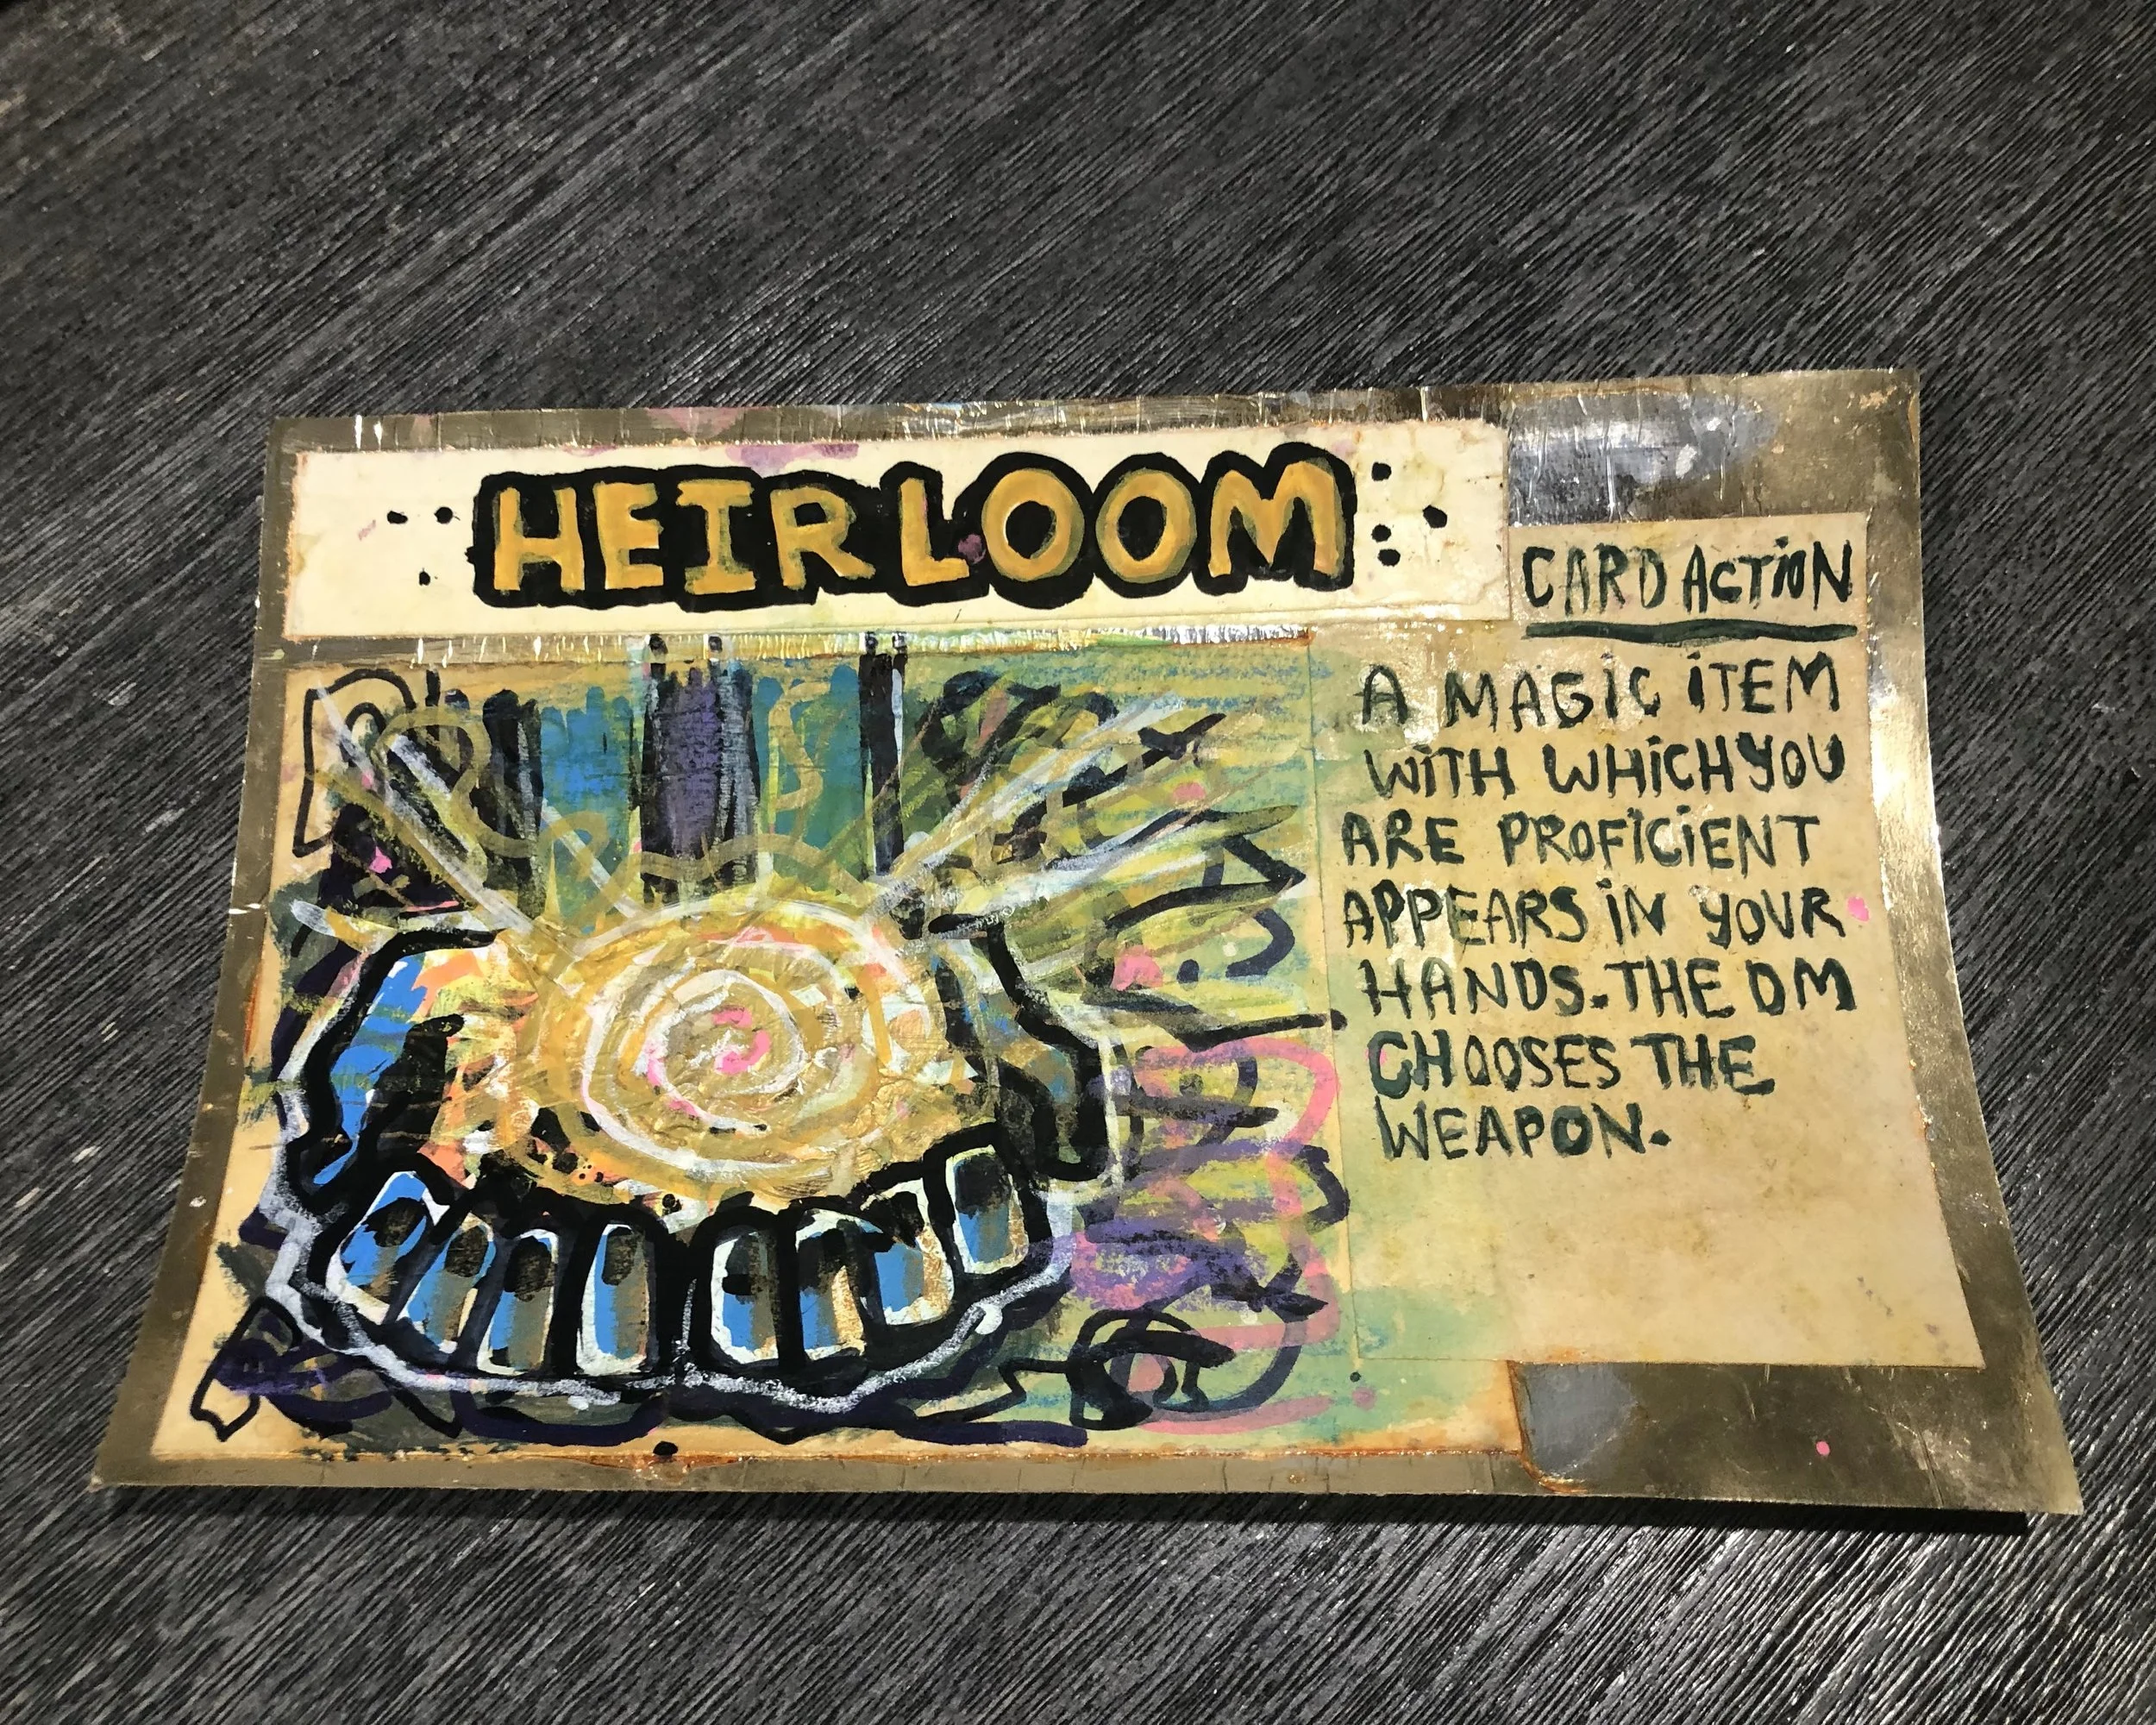 HEIRLOOM
CARD ACTiON
A MAGiC iTEM
WiTH WHiCH YOU
ARE PROFiCiENT
APPEARS iN YOUR
HANDS. THE DM
CHOOSES THE
WEAPON.